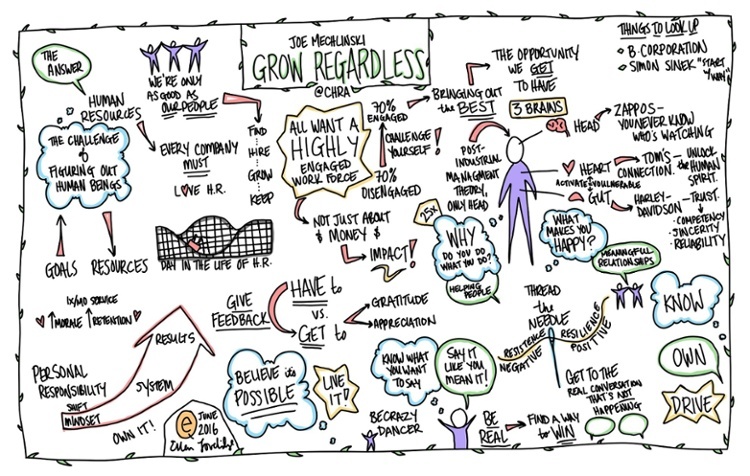 JOE MECHLINSKI
GROW REGARDLESS
@CHRA
THINGS TO LOOK UP
B. CORPORATION
SIMON SINEK "START
WHY"
THE
ANSWER
HUMAN
RESOURCES
THE CHALLENGE
of
FIGURING OUT
HUMAN BEINGS
GOALS
RESOURCES
WE'RE ONLY
AS GOOD AS
OUR PEOPLE
FIND
HIRE
GROW
KEEP
EVERY COMPANY
MUST
LOVE H.R.
DAY IN THE LIFE OF H.R.
ALL WANT A
HIGHLY
ENGAGED
WORK FORCE
70%
ENGAGED
CHALLENGE
YOURSELF!
70%
DISENGAGED
NOT JUST ABOUT
$ MONEY $
IMPACT!
BRINGING OUT
the BEST
THE OPPORTUNITY
WE GET
TO HAVE
3 BRAINS
HEAD
ZAPPOS-
YOU NEVER KNOW
WHO'S WATCHING
POST-
INDUSTRIAL
MANAGMENT
THEORY,
ONLY HEAD
HEART
ACTIVATE
VULNERABLE
GUT
TOM'S-
CONNECTION.
UNLOCK
THE HUMAN
SPIRIT.
HARLEY-
DAVIDSON
TRUST.
COMPETENCY
SINCERITY
RELIABILITY
25x
WHY
DO YOU DO
WHAT YOU DO?
HELPING
PEOPLE
WHAT
MAKES YOU
HAPPY?
MEANINGFUL
RELATIONSHIPS
KNOW
OWN
DRIVE
1x/MO SERVICE
MORALE
RETENTION
PERSONAL
RESPONSIBILITY
SHIFT
MINDSET
SYSTEM
RESULTS
OWN IT!
e
JUNE
2016
GIVE
FEEDBACK
HAVE to
vs.
GET to
GRATITUDE
APPRECIATION
BELIEVE it's
POSSIBLE
LIVE
IT!
KNOW WHAT
YOU WANT
TO SAY
SAY IT
LIKE YOU
MEAN IT!
BE CRAZY
DANCER
BE
REAL
FIND A WAY
to WIN
THREAD
the
NEEDLE
RESISTENCE
NEGATIVE
RESILIENCE
POSITIVE
GET TO THE
REAL CONVERSATION
THAT'S NOT
HAPPENING